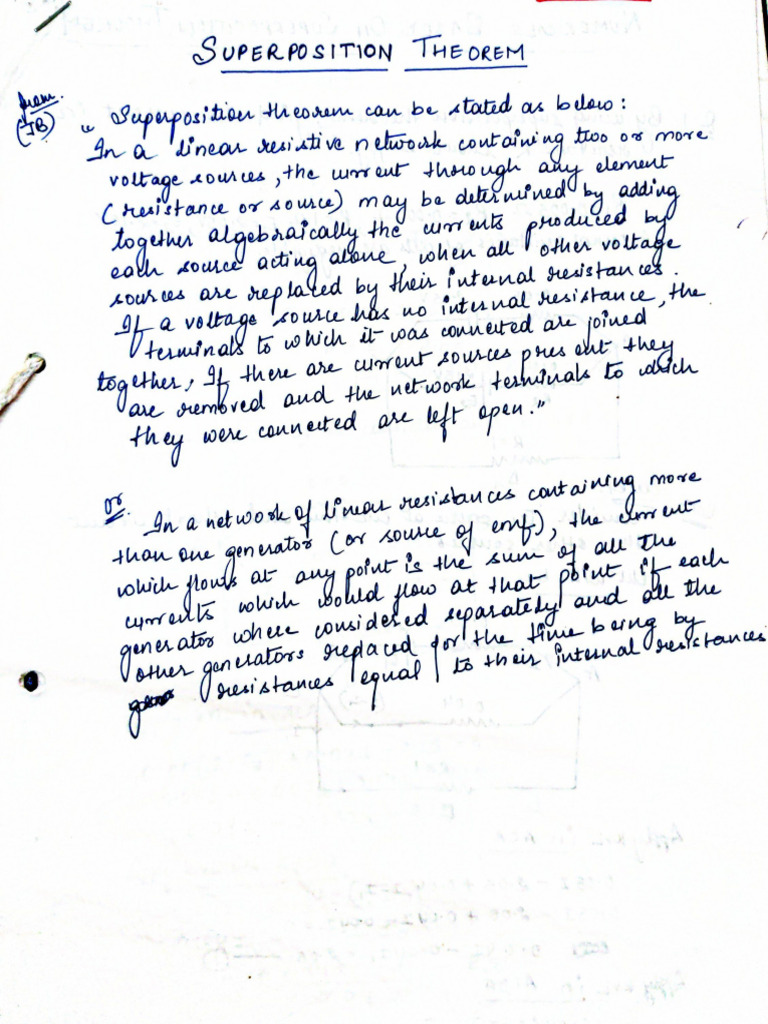 SUPERPOSITION THEOREM
from.
(JB)
" Superposition theorem can be stated as below :
In a linear resistive network containing two or more
voltage sources, the current through any element
(resistance or source) may be determined by adding
together algebraically the currents produced by
each source acting alone, when all other voltage
sources are replaced by their internal resistances.
If a voltage source has no internal resistance, the
terminals to which it was connected are joined
together, If there are current sources present they
are removed and the network terminals to which
they were connected are left open."
or.
In a network of linear resistances containing more
than one generator (or source of emf), the current
which flows at any point is the sum of all the
currents which would flow at that point if each
generator where considered separately and all the
other generators replaced for the time being by
resistances equal to their internal resistances